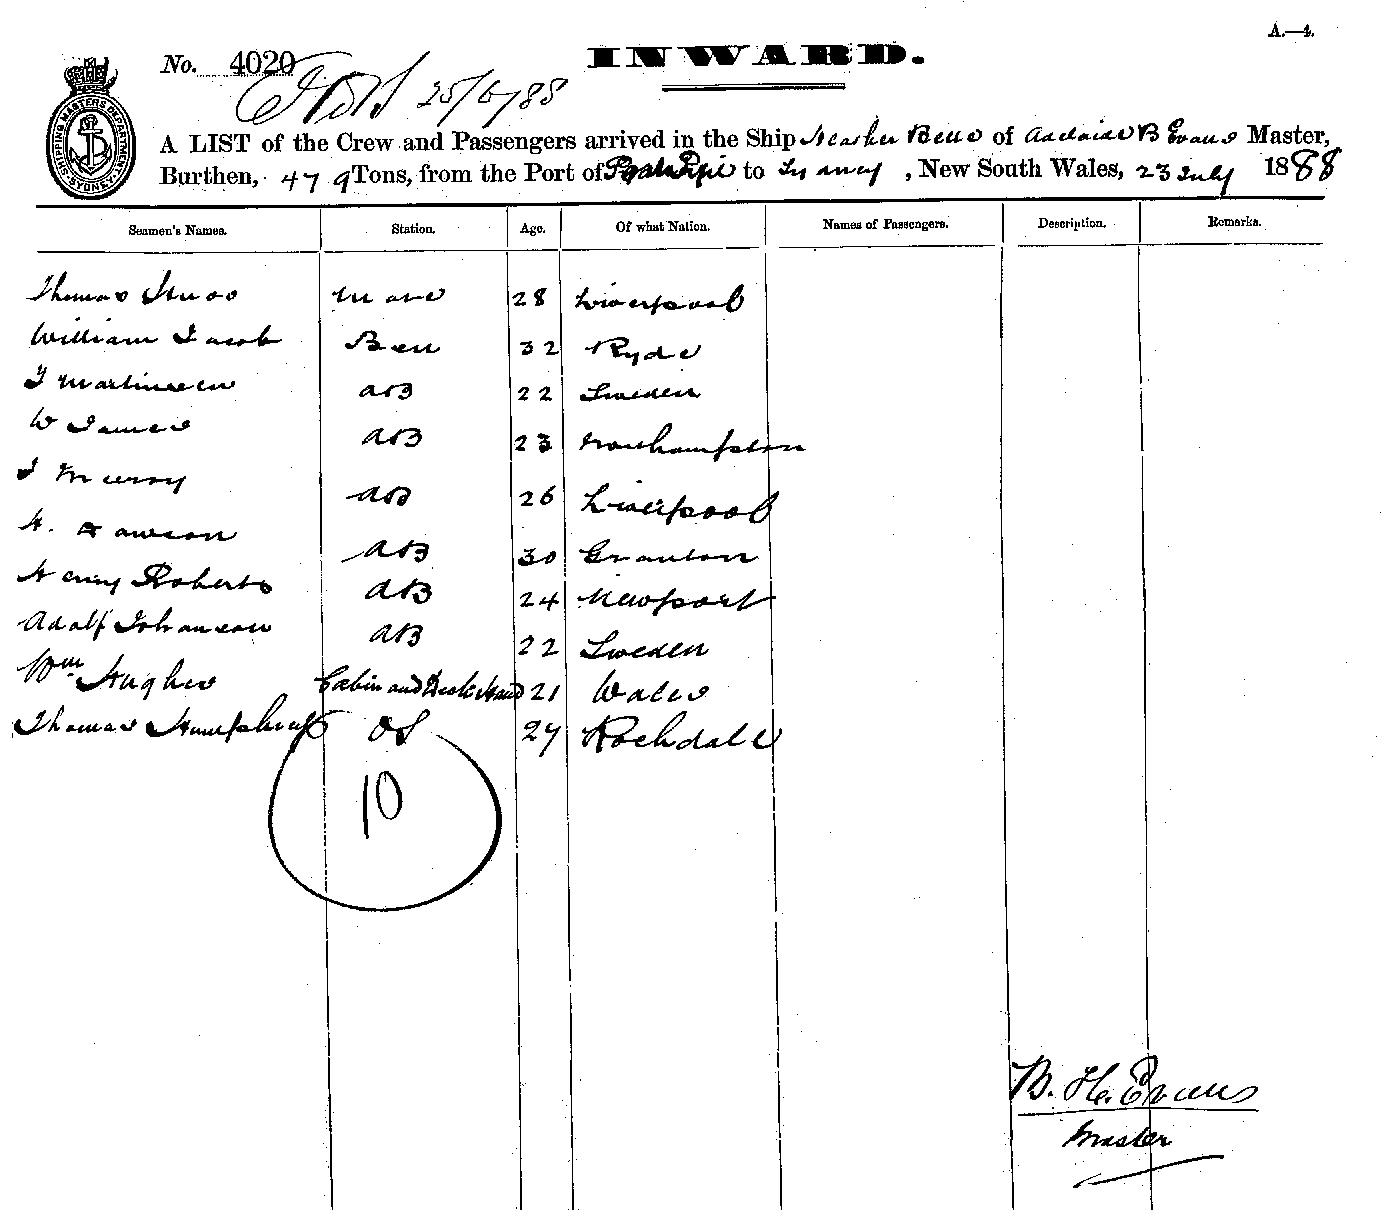 A.—4.
INWARD.
No. 4020
25/6/88
SHIPPING MASTERS DEPARTMENT SYDNEY
A LIST of the Crew and Passengers arrived in the Ship Heather Bell of Adelaide B Evans Master,
Burthen, 479 Tons, from the Port of to Sydney, New South Wales, 23 July 1888
Seamen's Names. Station. Age. Of what Nation. Names of Passengers. Description. Remarks.
Thomas Mate 28 Liverpool
William Jacob 32 Ryde
J Martinsen AB 22 Sweden
W James AB 23 Northampton
J Murray AB 26 Liverpool
H. Dawson AB 30 Granton
Henry Roberts AB 24 Newport
Adolf Johanson AB 22 Sweden
Wm Hughes Cabin and Deck Hand 21 Wales
Thomas Humphreys OS 27 Rochdale
10
B. H. Evans
Master